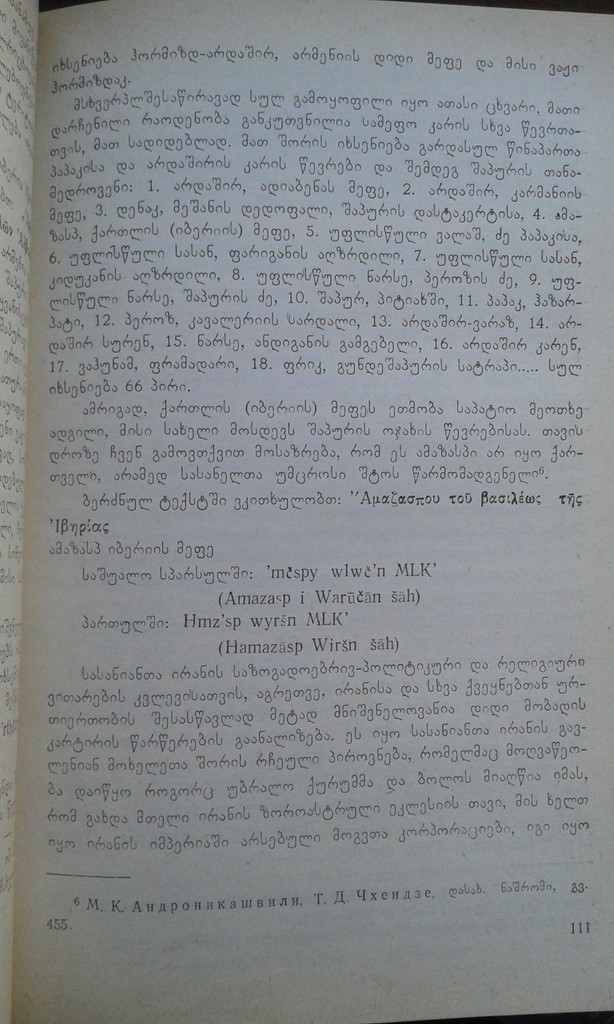 იხსენიება ჰორმიზდ-არდაშირ, არმენიის დიდი მეფე და მისი ვაჟი
ჰორმიზდაკ.
მსხვერპლშესაწირავად სულ გამოყოფილი იყო ათასი ცხვარი, მათი
დარჩენილი რაოდენობა განკუთვნილია სამეფო კარის სხვა წევრთა-
თვის, მათ სადიდებლად. მათ შორის იხსენიება გარდასულ წინაპართა
პაპაკისა და არდაშირის კარის წევრები და შემდეგ შაპურის თანა-
მედროვენი: 1. არდაშირ, ადიაბენას მეფე, 2. არდაშირ, კარმანიის
მეფე, 3. დენაკ, მეშანის დედოფალი, შაპურის დასტაკერტისა, 4. ამა-
ზასპ, ქართლის (იბერიის) მეფე, 5. უფლისწული ვალაშ, ძე პაპაკისა,
6. უფლისწული სასან, ფარიგანის აღზრდილი, 7. უფლისწული სასან,
კიდუკანის აღზრდილი, 8. უფლისწული ნარსე, პეროზის ძე, 9. უფ-
ლისწული ნარსე, შაპურის ძე, 10. შაპურ, პიტიახში, 11. პაპაკ, ჰაზარ-
პატი, 12. პეროზ, კავალერიის სარდალი, 13. არდაშირ-ვარაზ, 14. არ-
დაშირ სურენ, 15. ნარსე, ანდიგანის გამგებელი, 16. არდაშირ კარენ,
17. ვაჰუნამ, ფრამადარი, 18. ფრიკ, გუნდეშაპურის სატრაპი..... სულ
იხსენიება 66 პირი.
ამრიგად, ქართლის (იბერიის) მეფეს ეთმობა საპატიო მეოთხე
ადგილი, მისი სახელი მოსდევს შაპურის ოჯახის წევრებისას. თავის
დროზე ჩვენ გამოვთქვით მოსაზრება, რომ ეს ამაზასპი არ იყო ქარ-
თველი, არამედ სასანელთა უმცროსი შტოს წარმომადგენელი⁶.
ბერძნულ ტექსტში ვკითხულობთ: ʼʼΑμαζασπου τοῦ βασιλέως τῆς
ʼΙβηρίας
ამაზასპ იბერიის მეფე
საშუალო სპარსულში: 'mčspy wlwč'n MLK'
(Amazasp i Waručān šāh)
პართულში: Hmz'sp wyršn MLK'
(Hamazasp Wiršn šāh)
სასანიანთა ირანის საზოგადოებრივ-პოლიტიკური და რელიგიური
ვითარების კვლევისათვის, აგრეთვე, ირანისა და სხვა ქვეყნებთან ურ-
თიერთობის შესასწავლად მეტად მნიშვნელოვანია დიდი მობადის
კარტირის წარწერების გაანალიზება. ეს იყო სასანიანთა ირანის გავ-
ლენიან მოხელეთა შორის რჩეული პიროვნება, რომელმაც მოღვაწეო-
ბა დაიწყო როგორც უბრალო ქურუმმა და ბოლოს მიაღწია იმას,
რომ გახდა მთელი ირანის ზოროასტრული ეკლესიის თავი, მის ხელთ
იყო ირანის იმპერიაში არსებული მოგვთა კორპორაციები, იგი იყო
⁶ М. К. Андроникашвили, Т. Д. Чхеидзе, დასახ. ნაშრომი, გვ.
455.
111